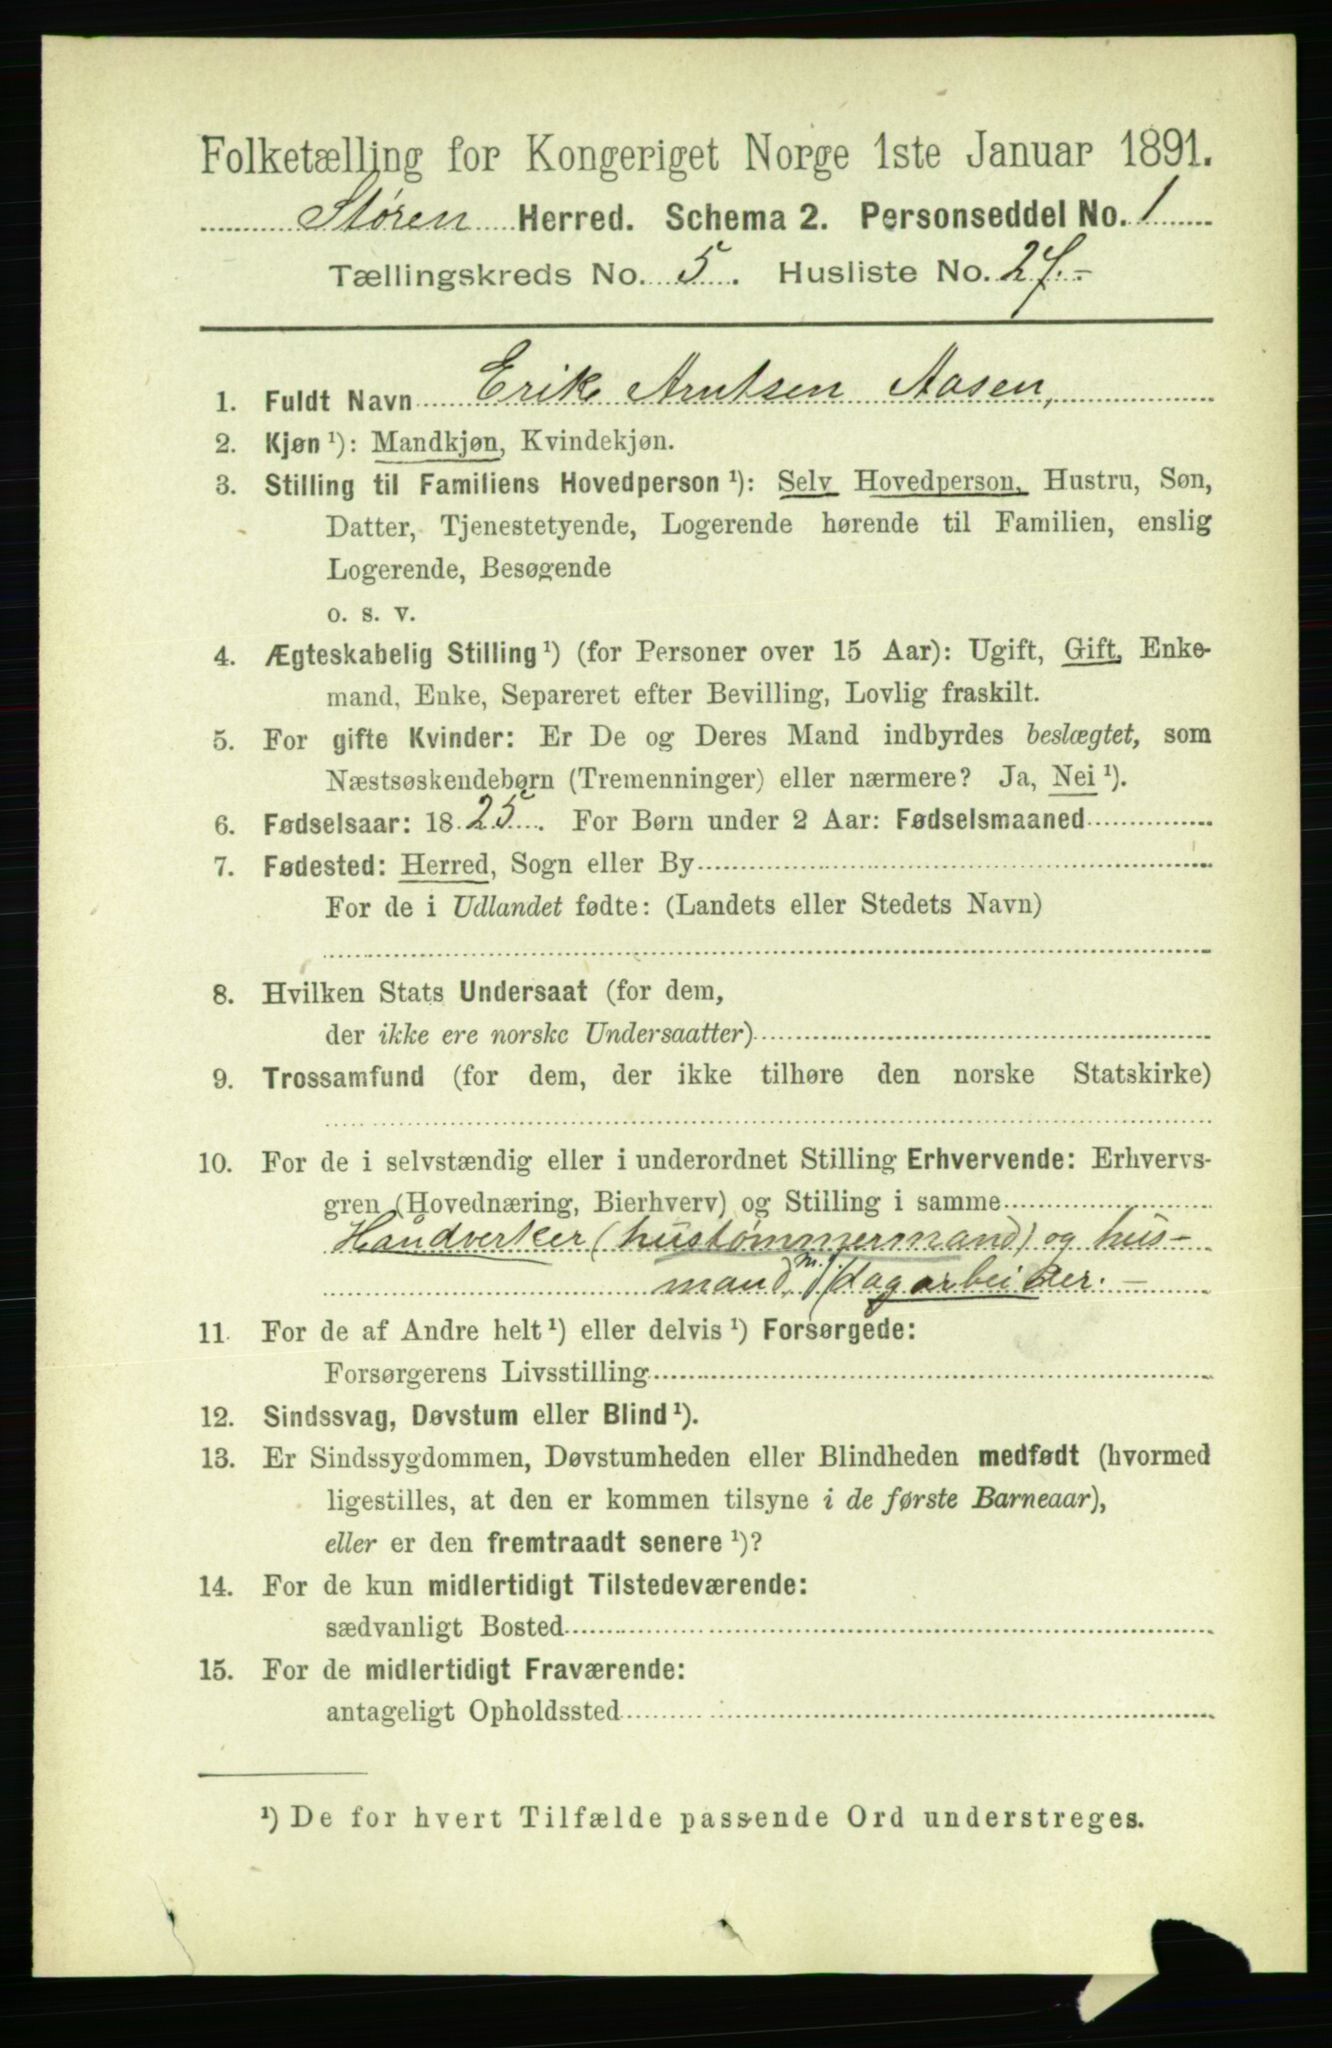 Folketælling for Kongeriget Norge 1ste Januar 1891.
Støren Herred. Schema 2. Personseddel No. 1
Tællingskreds No. 5. Husliste No. 27.-
1. Fuldt Navn Erik Arntsen Aasen,
2. Kjøn ¹): Mandkjøn, Kvindekjøn.
3. Stilling til Familiens Hovedperson ¹): Selv Hovedperson, Hustru, Søn,
Datter, Tjenestetyende, Logerende hørende til Familien, enslig
Logerende, Besøgende
o. s. v.
4. Ægteskabelig Stilling ¹) (for Personer over 15 Aar): Ugift, Gift, Enke-
mand, Enke, Separeret efter Bevilling, Lovlig fraskilt.
5. For gifte Kvinder: Er De og Deres Mand indbyrdes beslægtet, som
Næstsøskendebørn (Tremenninger) eller nærmere? Ja, Nei ¹).
6. Fødselsaar: 1825. For Børn under 2 Aar: Fødselsmaaned
7. Fødested: Herred, Sogn eller By
For de i Udlandet fødte: (Landets eller Stedets Navn)
8. Hvilken Stats Undersaat (for dem,
der ikke ere norske Undersaatter)
9. Trossamfund (for dem, der ikke tilhøre den norske Statskirke)
10. For de i selvstændig eller i underordnet Stilling Erhvervende: Erhvervs-
gren (Hovednæring, Bierhverv) og Stilling i samme
Håndverker (hustømmermand) og hus-
mand m. j. (dagarbeider. -
11. For de af Andre helt ¹) eller delvis ¹) Forsørgede:
Forsørgerens Livsstilling
12. Sindssvag, Døvstum eller Blind ¹).
13. Er Sindssygdommen, Døvstumheden eller Blindheden medfødt (hvormed
ligestilles, at den er kommen tilsyne i de første Barneaar),
eller er den fremtraadt senere ¹)?
14. For de kun midlertidigt Tilstedeværende:
sædvanligt Bosted
15. For de midlertidigt Fraværende:
antageligt Opholdssted
¹) De for hvert Tilfælde passende Ord understreges.